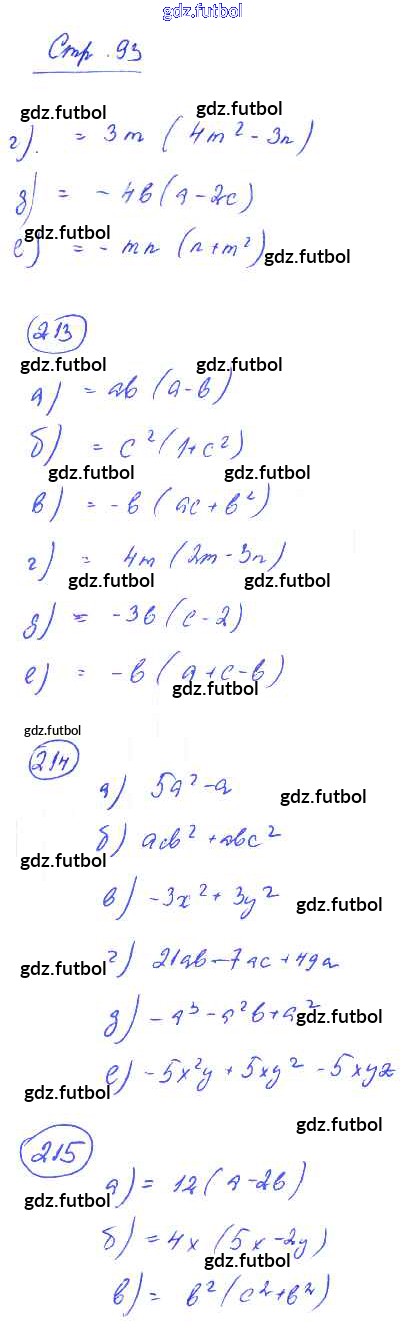 gdz.futbol
Стр. 93
gdz.futbol gdz.futbol
г). = 3m (4m² - 3n)
д) = - 4b (a - 2c)
gdz.futbol
е) = - mn (n + m²) gdz.futbol
213
gdz.futbol gdz.futbol
а) = ab (a - b)
б) = c² (1 + c²)
gdz.futbol gdz.futbol
в) = - b (ac + b²)
г) = 4m (2m - 3n)
gdz.futbol gdz.futbol
д) = - 3b (c - 2)
е) = - b (a + c - b)
gdz.futbol
gdz.futbol
214
а) 5a² - a gdz.futbol
б) acb² + abc²
gdz.futbol
в) - 3x² + 3y² gdz.futbol
gdz.futbol г) 21ab - 7ac + 49a
д) - a³ - a²b + a² gdz.futbol
е) - 5x²y + 5xy² - 5xyz
gdz.futbol
gdz.futbol
215
а) = 12 (a - 2b)
gdz.futbol
б) = 4x (5x - 2y)
gdz.futbol
в) = b² (c² + b²)